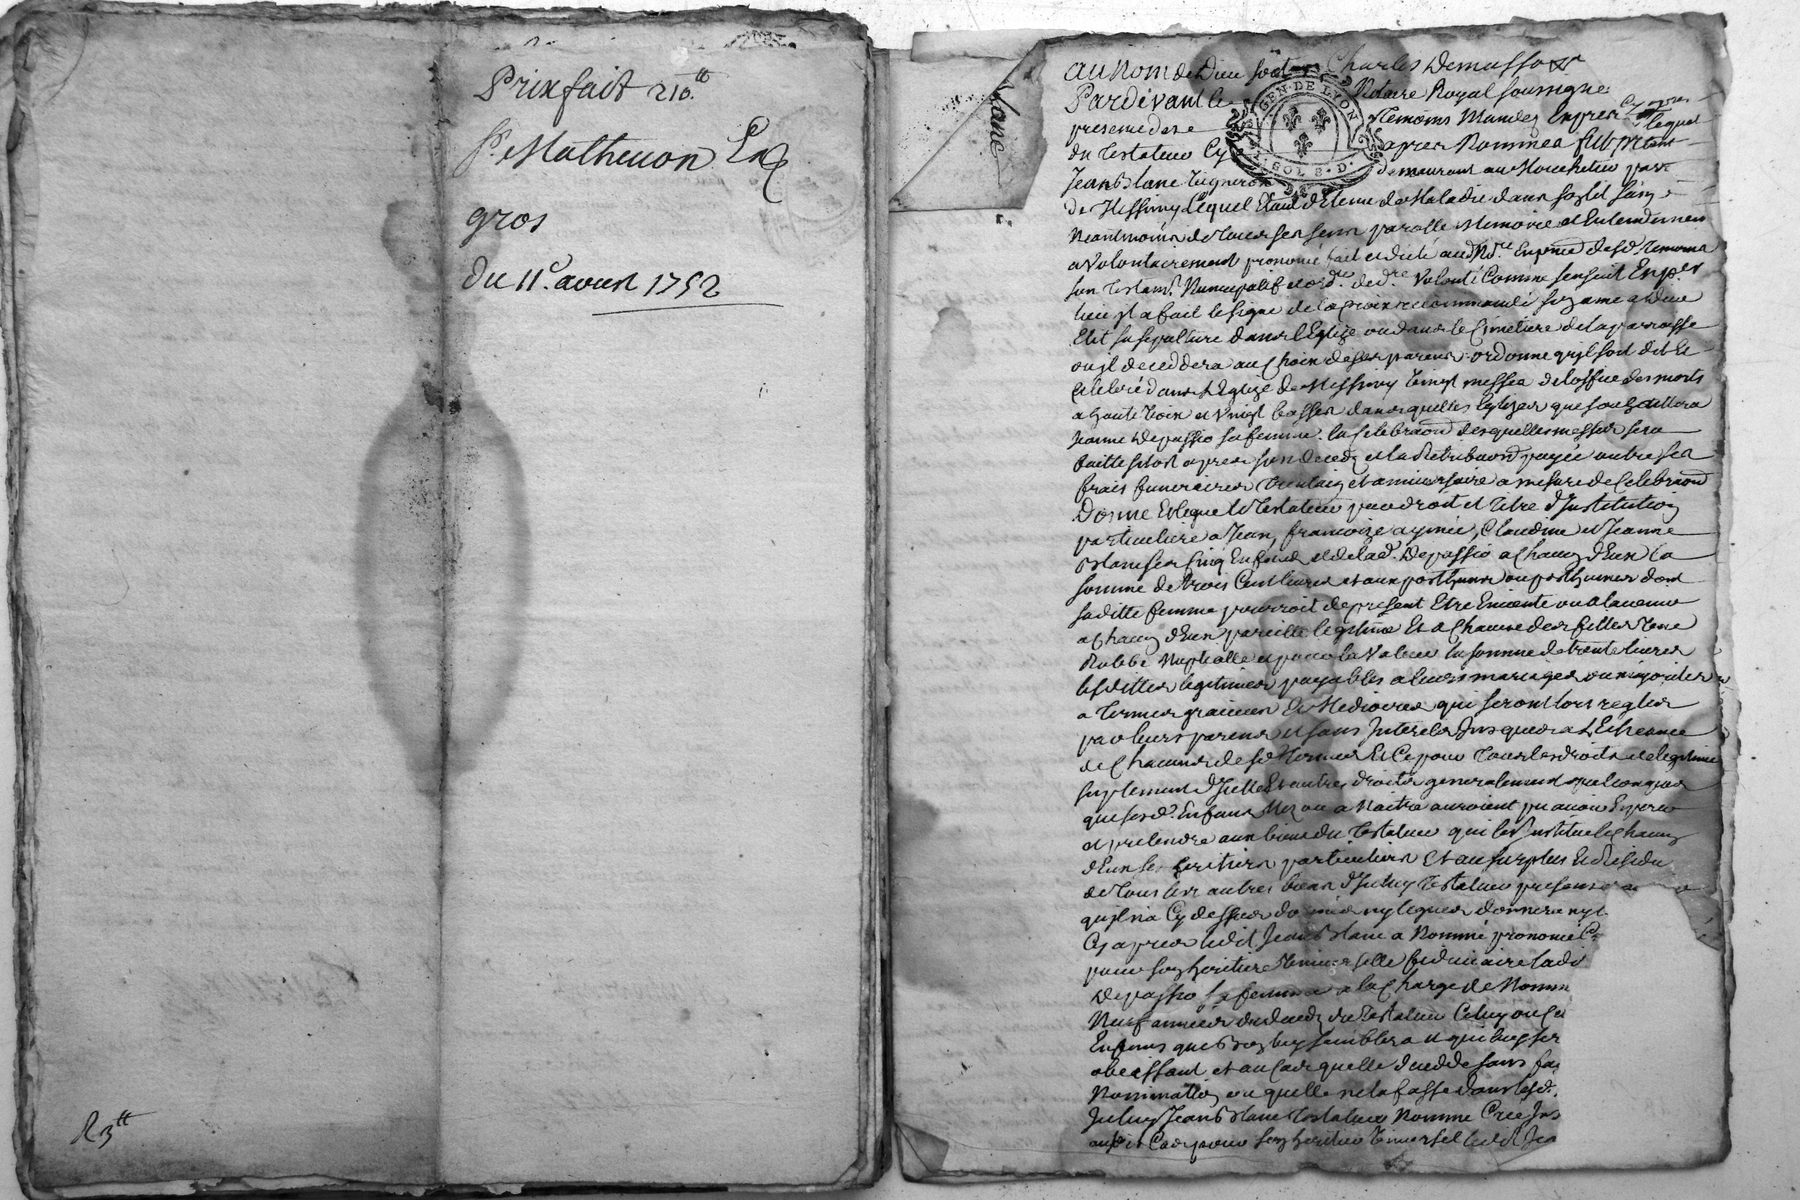 Prixfait 210.tt
Sr Mathevon
gros
du 11e. avril 1752
R 3tt
Blanc
au Nom de Dieu soit Charles Demusson
Pardevant le Notaire Royal soussigné
presence des temoins Mandes Enpres
du testateur Cy apres Nommes fut present
Jean Blanc Vigneron demeurant au
GEN. DE LYON
SOL 8. D.
de Messimy lequel Etant detenu de Maladie dans son lit sain
Neantmoins de tous ses sens parolle Memoire et Entendement
a Volontairement prononcé fait et dicté aud Nre Enpnce desd. temoins
son testamt. Nuncupatif et ordre. de dre Volonté Comme sensuit Enper
lieu Il a fait le signe de la Croix recommandé son ame a Dieu
Elit sa sepulture dans l'Eglize ou dans le Cimetiere de la parroisse
ou il deceddera au Choix de ses parens ordonne qu'il soit dit Et
Celebré dans l'Eglize de Messimy Vingt messes de l'office des morts
a haute Voix et Vingt basses dans quelles Eglizes que souhaittera
Jeanne Depassio sa femme la Celebraon desquelles messes sera
faitte sitost apres son deced et la Retribuon payée outre ses
frais funeraires et anniversaire a mesure de Celebraon
Donne Et legue le Testateur par droit et titre d'Institution
particuliere a Jean, francoise aymée, Claudine et Jeanne
Blanc ses Cinq Enfens et de lad. Depassio a Chacun d'Eux la
somme de trois Cent livres et aux posthume ou posthumes dont
sa ditte femme pourroit de present Etre Enceinte ou a lavenir
a Chacun d'Eux pareille legitime Et a Chacune des filles Une
Robbe Nuptialle et pour la Valeur la somme de trente livres
lesdittes legitimes payables a leurs mariages ou majorites
a termes gracieux Et Mediocres qui seront lors regles
par leurs parens et sans Interets Jusques a l'Echeance
de Chacuns desd termes Et Ce pour tous les droits de legitime
suplement d'Icelle Et autres droits generalement quelconques
que sesd. Enfans Nez ou a Naitre auroient pu avoir Esperer
et pretendre aux biens du Testateur qui les Institue Chacun
d'Eux ses heritiers particuliers Et au surplus Et Residu
de tous les autres biens d'Iceluy Testateur presens
qu'il n'a Cy dessus donné ny legués donnera ny l
Cy apres ledit Jean Blanc a Nommé prononcé
pour son heritiere Universelle fiduciaire ladi
Depassio sa femme a la Charge de Nomm
Neuf années du deced du Testateur Celuy ou Ce
Enfans que bon luy semblera et qui luy ser
obeissant et au Cas quelle deced de sans fai
Nomination ou quelle ne la fasse dans lesd.
Iceluy Jean Blanc Testateur Nomme Crée Ins
audit Cas pour son heritier Universel ledit Jea